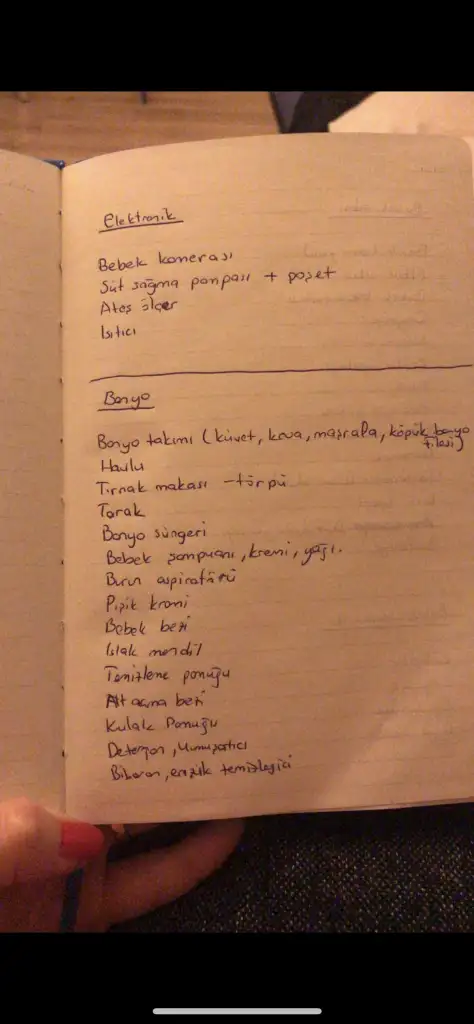 Elektronik
Bebek kamerası
Süt sağma pompası + poşet
Ateş ölçer
Isıtıcı
Banyo
Banyo takımı (küvet, kova, maşrafa, köpük banyo
filesi)
Havlu
Tırnak makası - törpü
Tarak
Banyo süngeri
Bebek şampuanı, kremi, yağı.
Burun aspiratörü
Pişik kremi
Bebek bezi
Islak mendil
Temizleme pamuğu
Alt açma bezi
Kulak Pamuğu
Deterjan, Yumuşatıcı
Biberon, emzik temizleyici